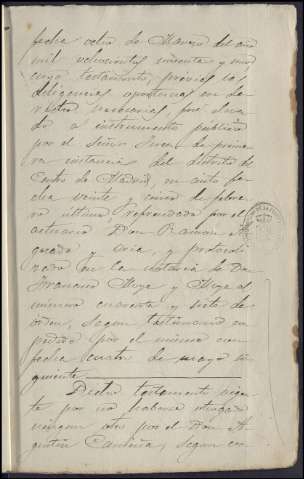 fecha ocho de Marzo del año
mil ochocientos noventa y
cuyo testamento, previas las
diligencias oportunas en de
necesarias, fué eleva
do á instrumento público
por el Señor Juez de prime
ra instancia del distrito de
Centro de Madrid, en auto fe
cha veinte y cinco de febre
ro último refrendado por el
actuario Don Ramon
y protocoli
zado en la notaria de Don
Francisco Moya y Moya al
número cuarenta y siete de
órden, segun testimonio ex
pedido por el mismo con
fecha cuatro de mayo si
guiente.
Dicho testamento vigen
te por no haberse otorgado
ningun otro por el Don A
gustin segun cer